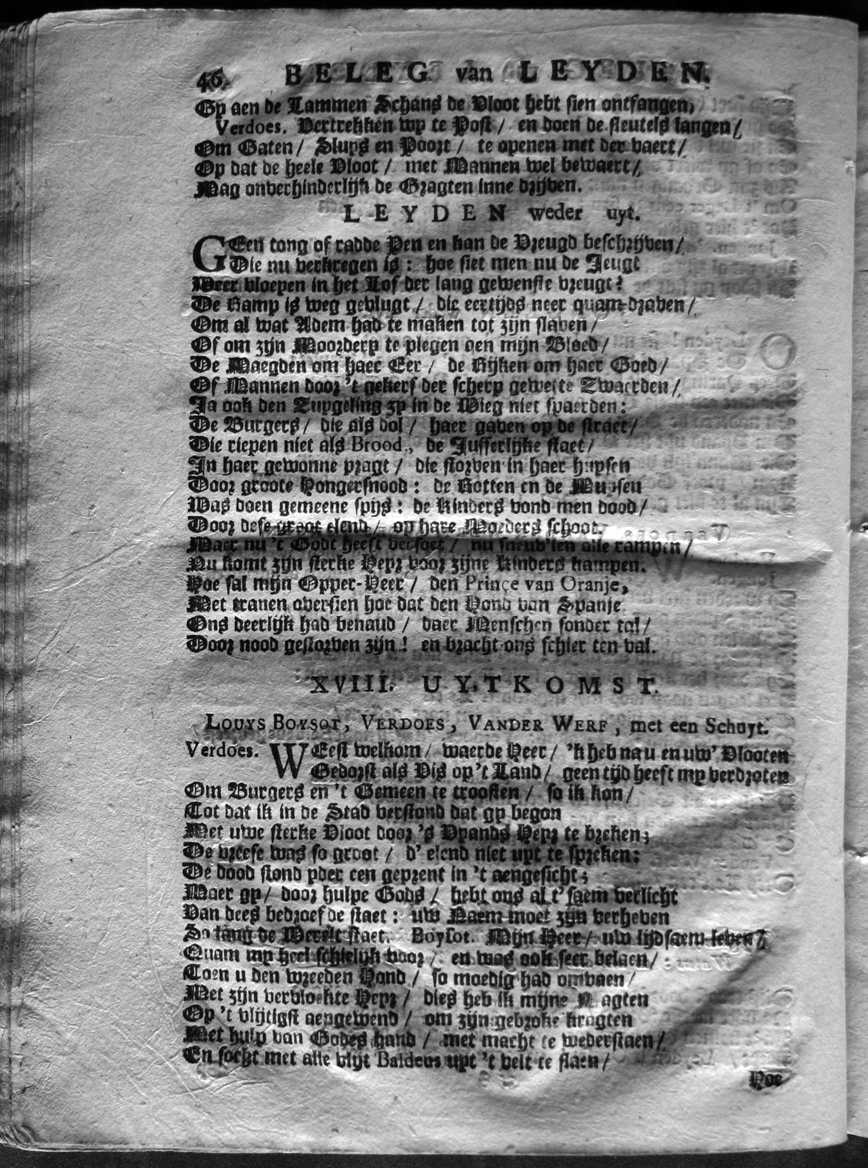 46. BELEG van LEYDEN.
Gy aen de Lammen Schans de Vloot hebt sien ontfangen,
Verdoes. Vertrekken wy te Post / en doen de sleutels langen /
Om Gaten / Sluys en Poort / te openen met der vaert /
Op dat de heele Vloot / met Mannen wel bewaert /
Mag onverhinderlijk de Gragten inne drijven.
LEYDEN weder uyt.
GEen tong of radde Pen en kan de Vreugd beschrijven /
Die nu verkregen is : hoe siet men nu de Jeugt
Weer vloeyen in het Lof der lang gewenste vreugt ?
De Ramp is weg gevlugt / die eertijds neer quam draven /
Om al wat Adem had te maken tot zijn slaven /
Of om zijn Moordery te plegen aen mijn Bloed /
De Maegden om haer Eer / de Rijken om haer Goed /
Of Mannen door 't gekerf der scherp gewette Zwaerden /
Ja ook den Zuygeling zy in de Wieg niet spaerden :
De Burgers / die als dol / haer gaven op de straet /
Die riepen niet als Brood , de Jufferlijke staet /
In haer gewonne pragt / die storven in haer huysen
Door groote Hongersnood : de Rotten en de Muysen
Was doen gemeene spijs : de Kinders vond men dood /
Door dese groot elend / op hare Moeders schoot.
Maer nu 't Godt heeft versoet / nu alle rampen /
Nu komt zijn sterke Heyr voor zijne Kinders kampen.
Hoe sal mijn Opper-Heer / den Prince van Oranje,
Met tranen oversien hoe dat den Hond van Spanje
Ons deerlijk had benaud / daer Menschen sonder tal /
Door nood gestorven zijn ! en bracht ons schier ten val.
XVIII. UYTKOMST.
LOUYS BOYSOT, VERDOES, VANDER WERF, met een Schuyt.
Verdoes. WEest welkom / waerde Heer / 'k heb na u en uw' Vlooten
Gedorst als Vis op 't Land / geen tijd heeft my verdroten
Om Burgers en 't Gemeen te troosten / so ik kon /
Tot dat ik in de Stad verstond dat gy begon
Met uwe sterke Vloot door 's Vyands Heyr te breken ;
De vreese was so groot / d' elend niet uyt te spreken :
De dood stond yder een geprent in 't aengesicht ;
Maer gy / door hulpe Gods / hebt ons al t'saem verlicht
Van dees bedroefde staet : uw Naem moet zijn verheven
So lang de Werelt staet. Boysot. Mijn Heer / uw lijdsaem leven /
Quam my heel schielijk voor / en was ook seer belaen / :
Toen u den wreeden Hond / so moedig had omvaen /
Met zijn vervloekte Heyr / dies heb ik mijne Magten
Op 't vlijtigst aengewend / om zijn gebroke kragten
Met hulp van Godes hand / met macht te wederstaen /
En socht met alle vlijt Baldeus uyt 't velt te slaen /
Hoe